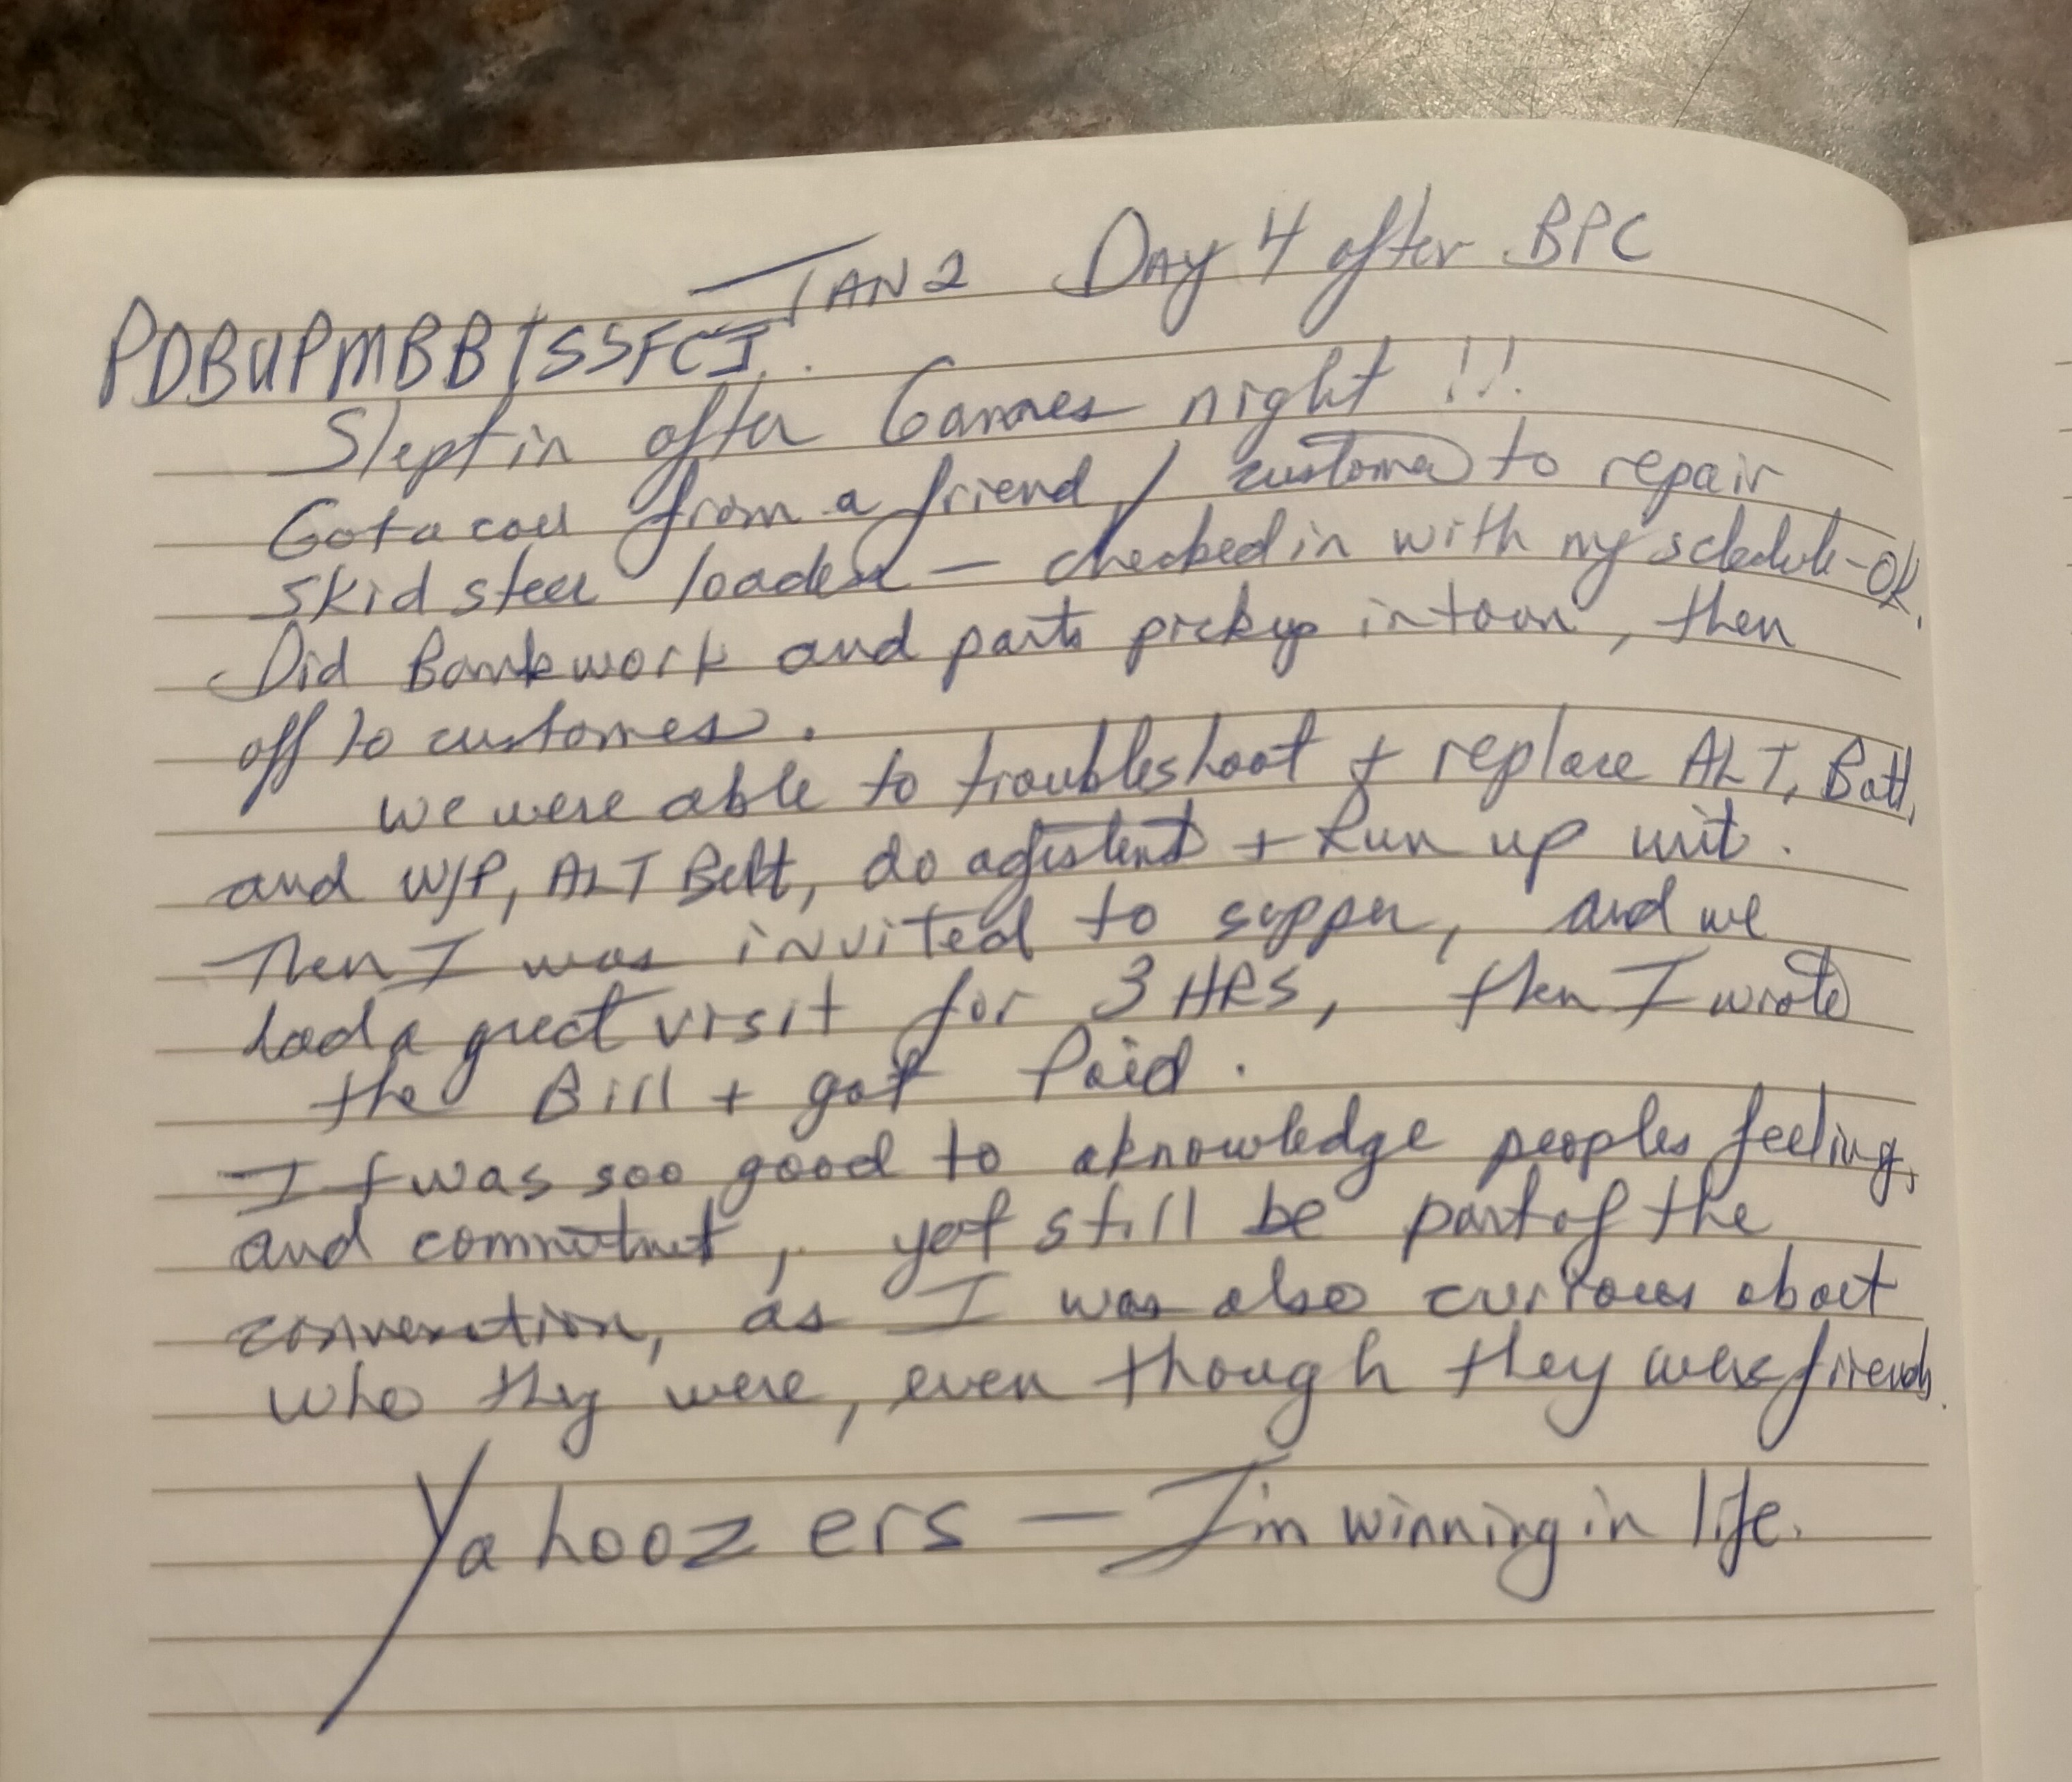 JAN 2 Day 4 after BPC
PDBUPMBBTSSFCJ.
Slept in after Games night !!!
Got a call from a friend / customer to repair
skid steer loader – checked in with my schedule - OK.
Did Bankwork and parts pickup in town, then
off to customers.
we were able to troubleshoot + replace ALT, Batt,
and W/P, ALT Belt, do + Run up unit.
Then I was invited to supper, and we
had a great visit for 3 HRS, then I wrote
the Bill + got Paid.
It was soo good to aknowledge peoples feelings,
and , yet still be part of the
conversation, as I was also curious about
who they were, even though they were friends.
Yahoozers – I'm winning in life.